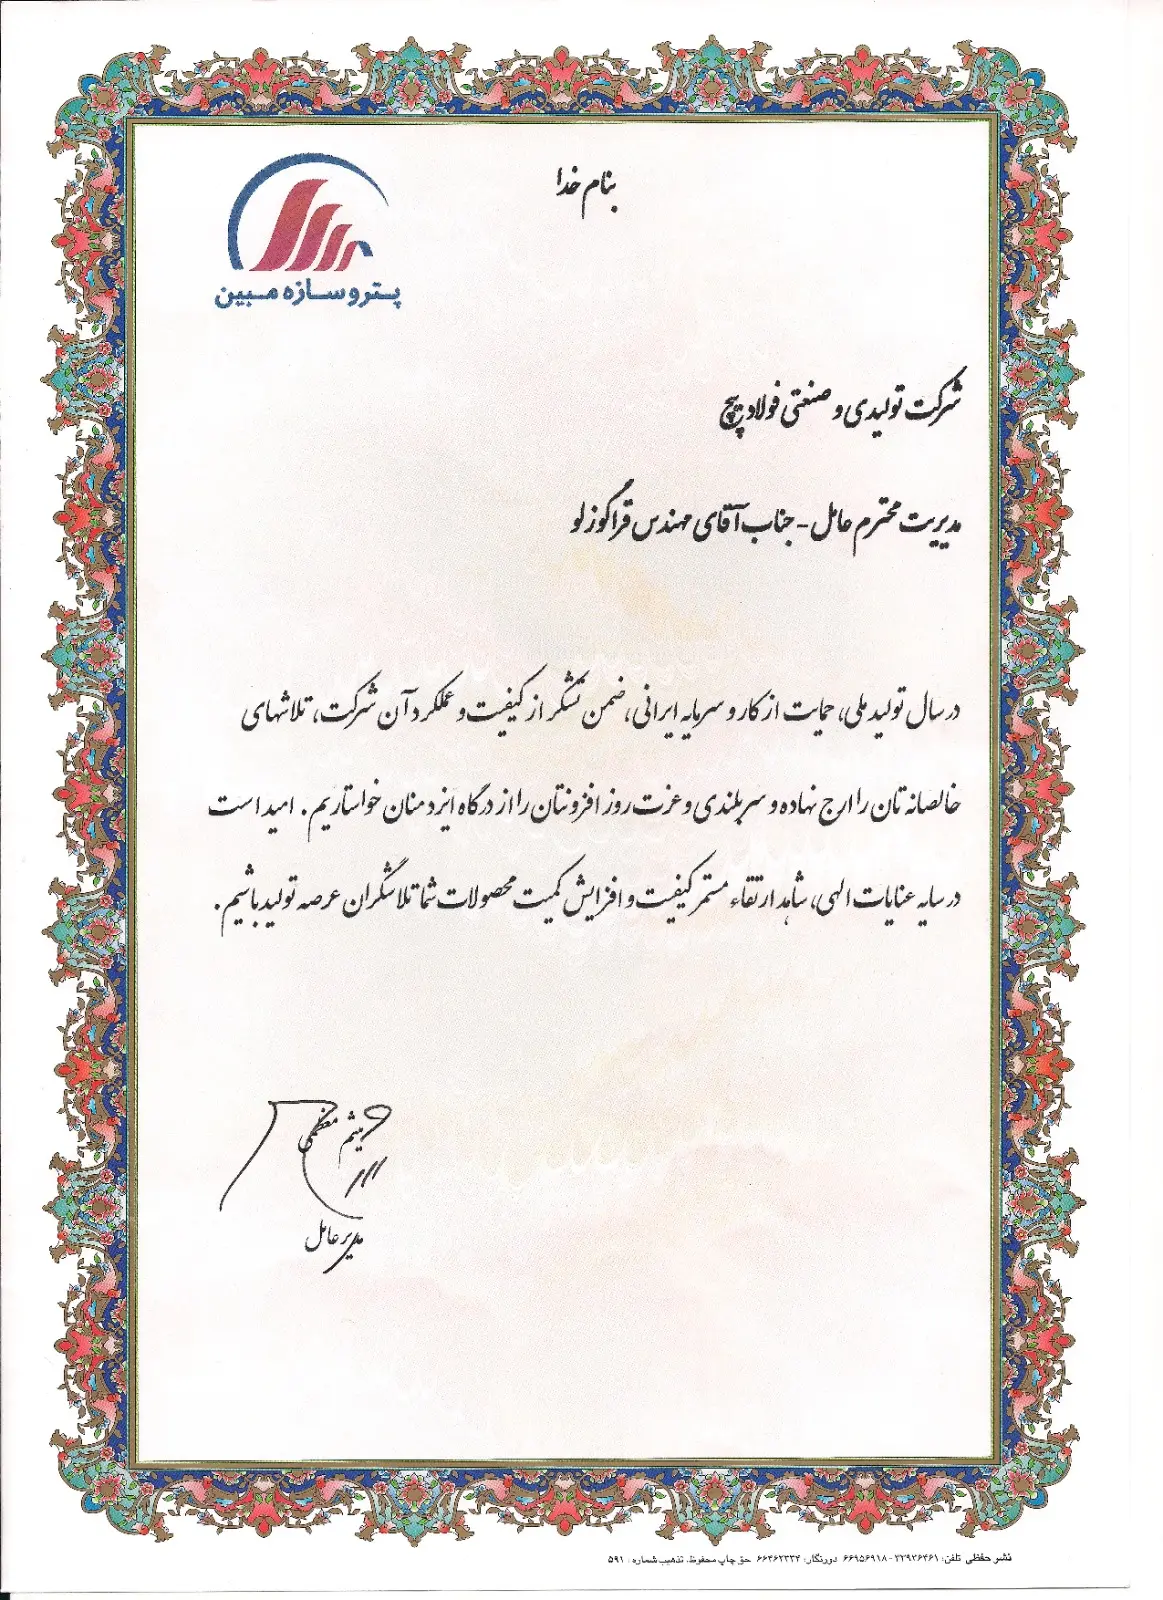 بنام خدا
پتروسازه مبین
شرکت تولیدی و صنعتی فولاد پیچ
مدیریت محترم عامل - جناب آقای مهندس قراگوزلو
در سال تولید ملی، حمایت از کار و سرمایه ایرانی، ضمن تشکر از کیفیت و عملکرد آن شرکت، تلاشهای
خالصانه تان را ارج نهاده و سربلندی و عزت روز افزونتان را از درگاه ایزد منان خواستاریم. امید است
در سایه عنایات الهی، شاهد ارتقاء مستمر کیفیت و افزایش کمیت محصولات شما تلاشگران عرصه تولید باشیم.
میثم معظمی
مدیر عامل
نشر حفظی تلفن: ۳۳۹۳۶۴۶۱-۶۶۹۵۶۹۱۸ دورنگار: ۶۶۴۶۲۳۳۴ حق چاپ محفوظ. تذهیب شماره: ۵۹۱